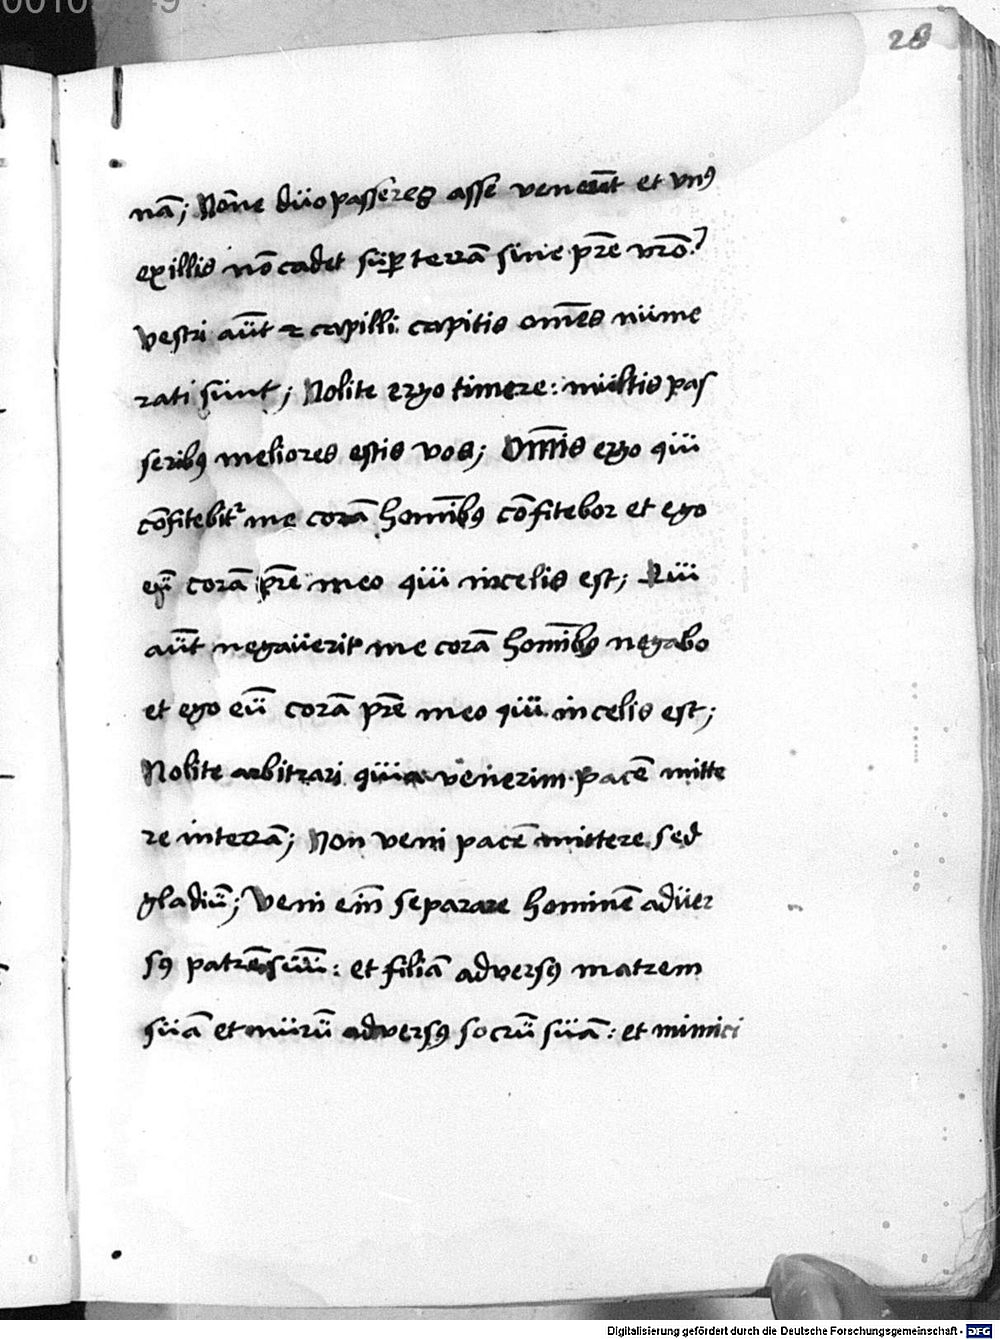 28
nā; Nōne düo passeres asse veneūt et vnꝯ
ex illis nō cadet süꝑ terrā sine pr̄e vr̄o?
Vestri aüt̄ & capilli capitis om̄es nüme
rati sünt; Nolite ergo timere: mültis pas
seribꝯ meliores estis vos; Om̄is ergo qüi
cōfitebitᷣ me corā homībꝯ cōfitebor et ego
eū corā pr̄e meo qüi in celis est; Qüi
aüt̄ negaüerit me corā homībꝯ negabo
et ego eū corā pr̄e meo qüi in celis est;
Nolite arbitrari qüia venerim pacē mitte
re in terrā; Non veni pacē mittere sed
gladiū; Veni eīn separare hominē adüer
sꝯ patrē süū: et filiā adversꝯ matrem
süā et nürū adversꝯ socrū süā: et inimici
Digitalisierung gefördert durch die Deutsche Forschungsgemeinschaft - DFG